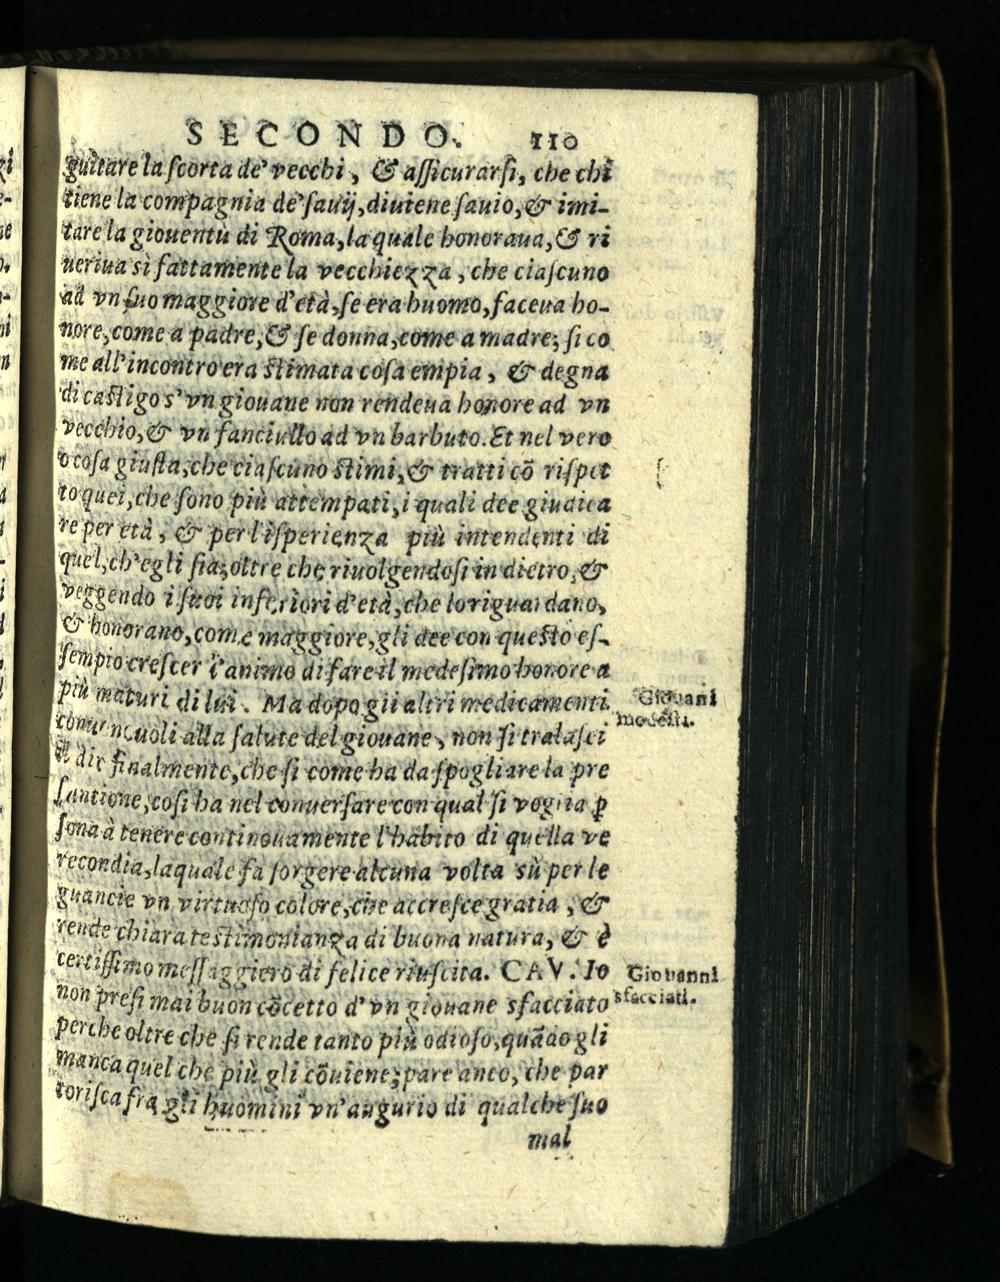 SECONDO. 110
guitare la scorta de' vecchi, & assicurarsi, che chi
tiene la compagnia de' sauij, diuiene sauio, & imi-
tare la giouentù di Roma, la quale honoraua, & ri
ueriua sì fattamente la vecchiezza, che ciascuno
ad vn suo maggiore d'età, se era huomo, faceua ho-
nore, come a padre, & se donna, come a madre; si co
me all'incontro era stimata cosa empia, & degna
di castigo s'vn giouane non rendeua honore ad vn
vecchio, & vn fanciullo ad vn barbuto. Et nel vero
è cosa giusta, che ciascuno stimi, & tratti cõ rispet
to quei, che sono più attempati, i quali dee giudica
re per età, & per l'isperienza più intendenti di
quel, ch'egli sia; oltre che riuolgendosi in dietro, &
veggendo i suoi inferiori d'età, che lo riguardano,
& honorano, come maggiore, gli dee con questo es-
sempio crescer l'animo di fare il medesimo honore a
più maturi di lui. Ma dopo gli altri medicamenti
Giovani
modesti.
conueneuoli alla salute del giouane, non si tralasci
di dir finalmente, che si come ha da spogliare la pre
suntione, cosi ha nel conuersare con qual si voglia ꝑ
sona à tenere continouamente l'habito di quella ve
recondia, laquale fa sorgere alcuna volta sù per le
guancie vn virtuoso colore, che accresce gratia, &
rende chiara testimonianza di buona natura, & è
certissimo messaggiero di felice riuscita. CAV. Io
Giovanni
sfacciati.
non presi mai buon cõcetto d'vn giouane sfacciato
perche oltre che si rende tanto più odioso, quãdo gli
manca quel che più gli cõuiene; pare anco, che par
torisca fra gli huomini vn'augurio di qualche suo
mal